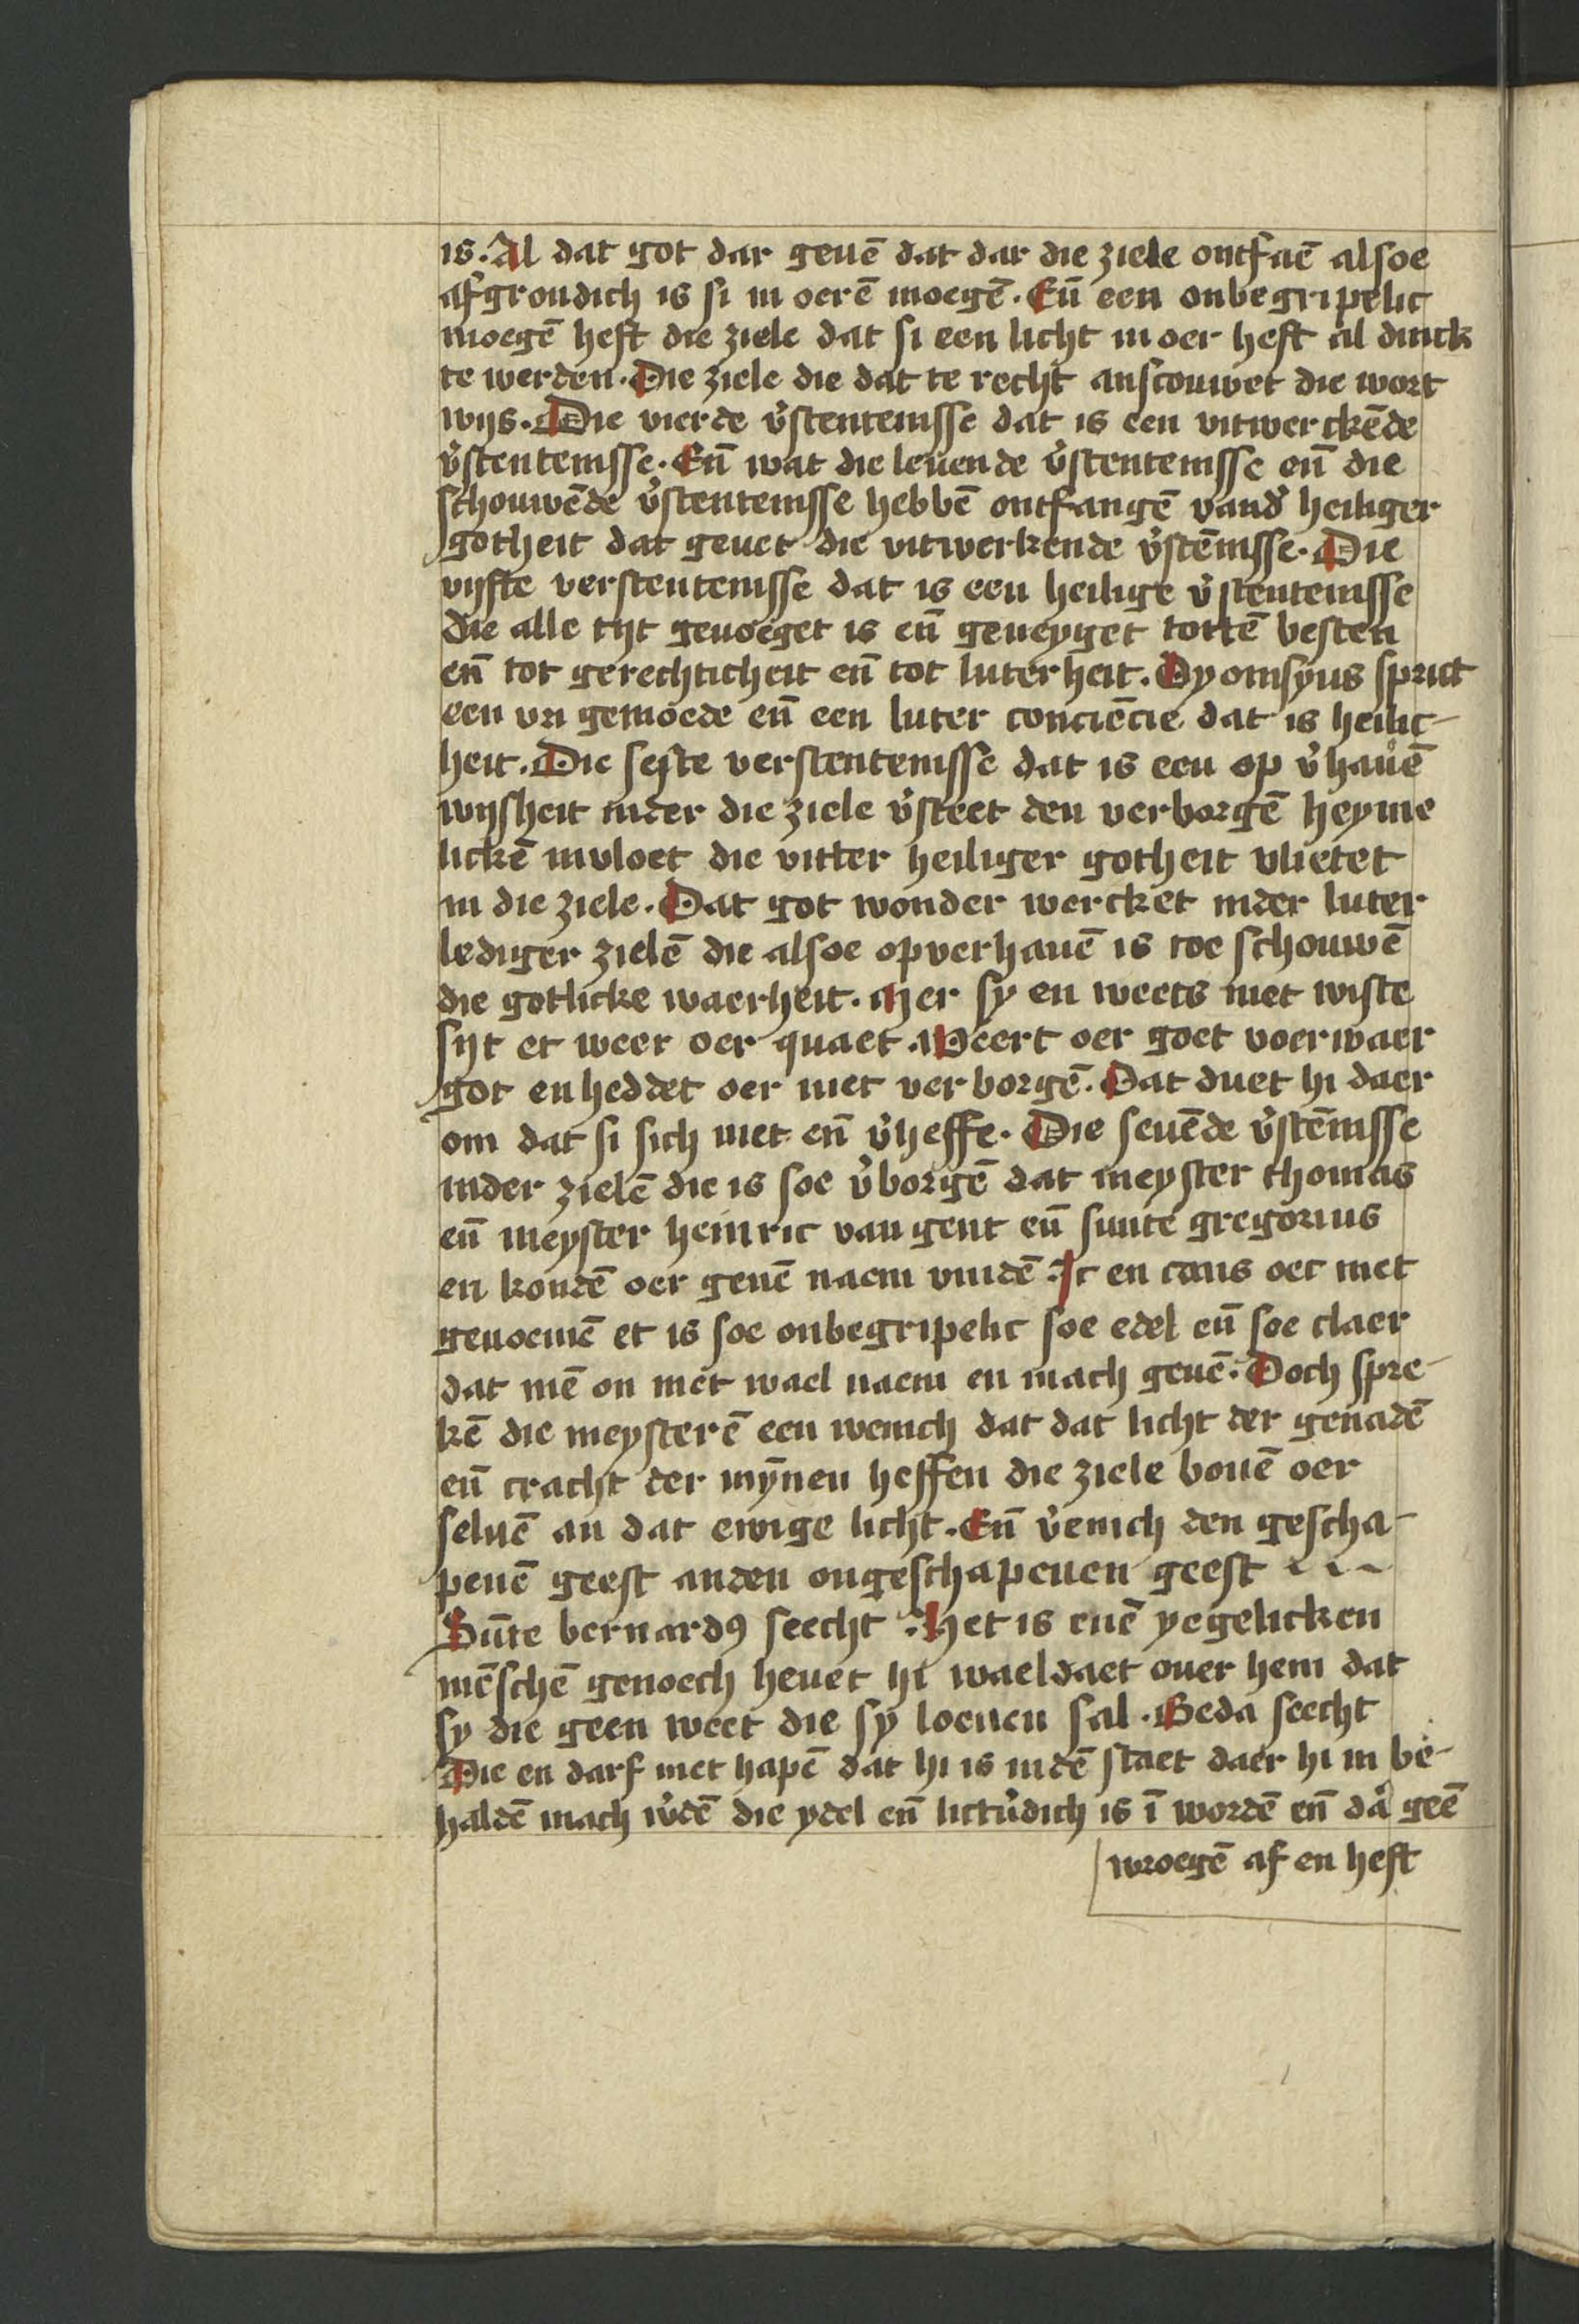 is. Al dat got dar geuē dat dar die ziele ontfaē alsoe
afgrondich is si in oerē moegē. Eñ een onbegripelic
moegē heft die ziele dat si een licht in oer heft al dinck
te werden. Die ziele die dat te recht anscouwet die wort
wijs. Die vierde v̾stentenisse dat is een vitwerckēde
v̾stentenisse. Eñ wat die leuende v̾stentenisse eñ die
schouwēde v̾stentenisse hebbē ontfangē vand̾ heiliger
gotheit dat geuet die vitwerkende v̾stēnisse. Die
vijfte verstentenisse dat is een heilige v̾stentenisse
die alle tijt geuoeget is eñ geneyget tottē besten
eñ tot gerechticheit eñ tot luterheit. Dyonisyus sprict
een vri gemoede eñ een luter conciēcie dat is heilic-
heit. Die seste verstentenisse dat is een op v̾hauē
wijsheit inder die ziele v̾steet den verborgē heyme
lickē invloet die vitter heiliger gotheit vlietet
in die ziele. Dat got wonder wercket inder luter
lediger zielē die alsoe opverhauē is toe schouwē
die gotlicke waerheit. Mer sy en weets niet wiste
sijt et weer oer quaet. Weert oer goet voerwaer
got en heddet oer niet verborgē. Dat duet hi daer
om dat si sich niet eñ v̾heffe. Die seuēde v̾stēnisse
inder zielē die is soe v̾borgē dat meyster thomas
eñ meyster heinric van gent eñ sunte gregorius
en kondē oer genē naem vindē. Ic en cans oec niet
genoemē et is soe onbegripelic soe edel eñ soe claer
dat mē on niet wael naem en mach geuē. Doch spre-
kē die meysterē een wenich dat dat licht der genadē
eñ cracht der mȳnen heffen die ziele bouē oer
seluē an dat ewige licht. Eñ v̾enich den gescha-
penē geest anden ongeschapenen geest
Sūte bernardꝰ seecht. Het is enē yegelicken
mēschē genoech heuet hi waeldaet ouer hem dat
sy die geen weet die sy loenen sal. Beda seecht
Die en darf niet hapē dat hi is indē staet daer hi in be-
haldē mach w̾dē die ydel eñ lictv̾dich is ī wordē eñ da̾ geē
wroegē af en heft